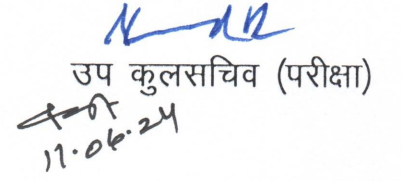 उप कुलसचिव (परीक्षा)
11.06.24